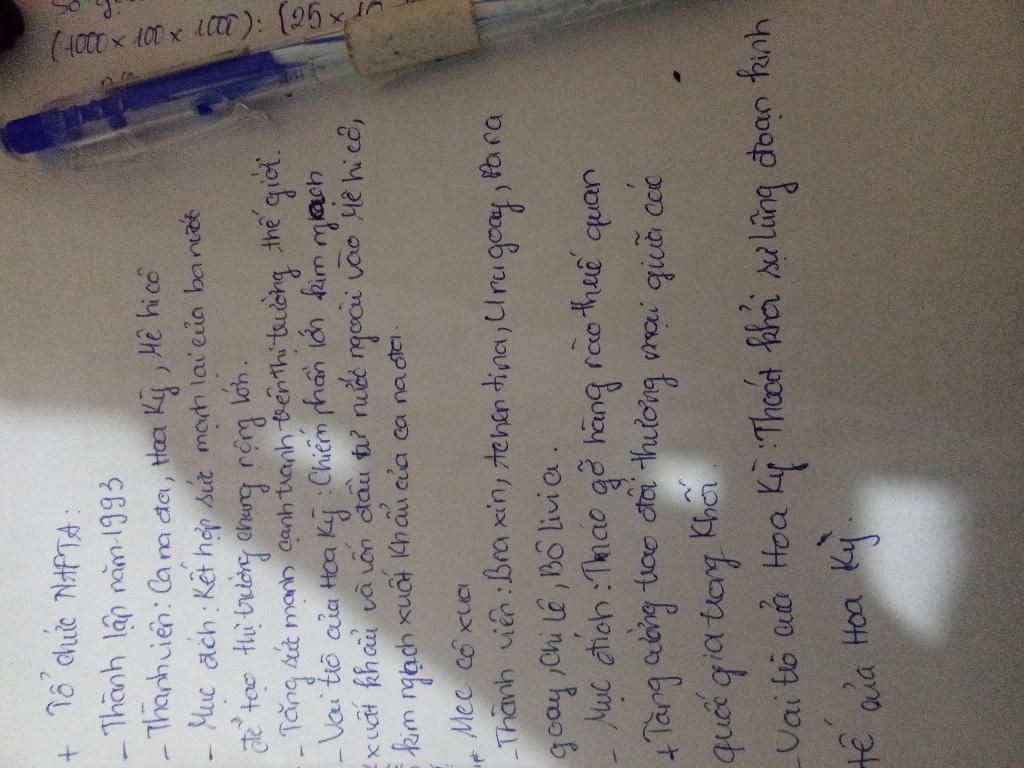 (1000 × 100 × 1000) : (25 × 10
+ Tổ chức NAPTA:
- Thành lập năm 1993
- Thành viên: Ca na đa, Hoa Kỳ, Mê hi cô
- Mục đích: Kết hợp sức mạnh lại của ba nước
để tạo thị trường chung rộng lớn.
- Tăng sức mạnh cạnh tranh trên thị trường thế giới.
- Vai trò của Hoa Kỳ: Chiếm phần lớn kim ngạch
xuất khẩu và vốn đầu tư nước ngoài vào Mê hi cô,
kim ngạch xuất khẩu của ca na đa.
+ Mec cô xua
- Thành viên: Bra xin, Achentina, Uru goay, Para
goay, Chi lê, Bô li via.
- Mục đích: Tháo gỡ hàng rào thuế quan
+ Tăng cường trao đổi thương mại giữa các
quốc gia trong khối.
- Vai trò của Hoa Kỳ: Thoát khỏi sự lũng đoạn kinh
tế của Hoa Kỳ.